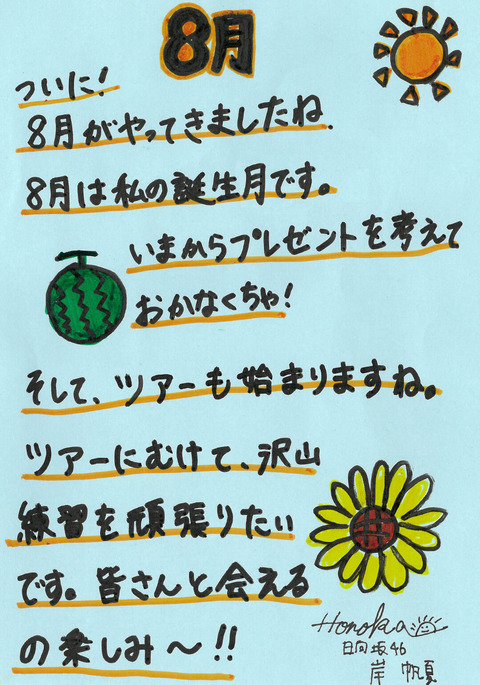 8月
ついに!
8月がやってきましたね.
8月は私の誕生月です。
いまからプレゼントを考えて
おかなくちゃ!
そして、ツアーも始まりますね。
ツアーにむけて、沢山
練習を頑張りたい
です。皆さんと会える
の楽しみ〜!!
Honoka
日向坂46
岸 帆夏